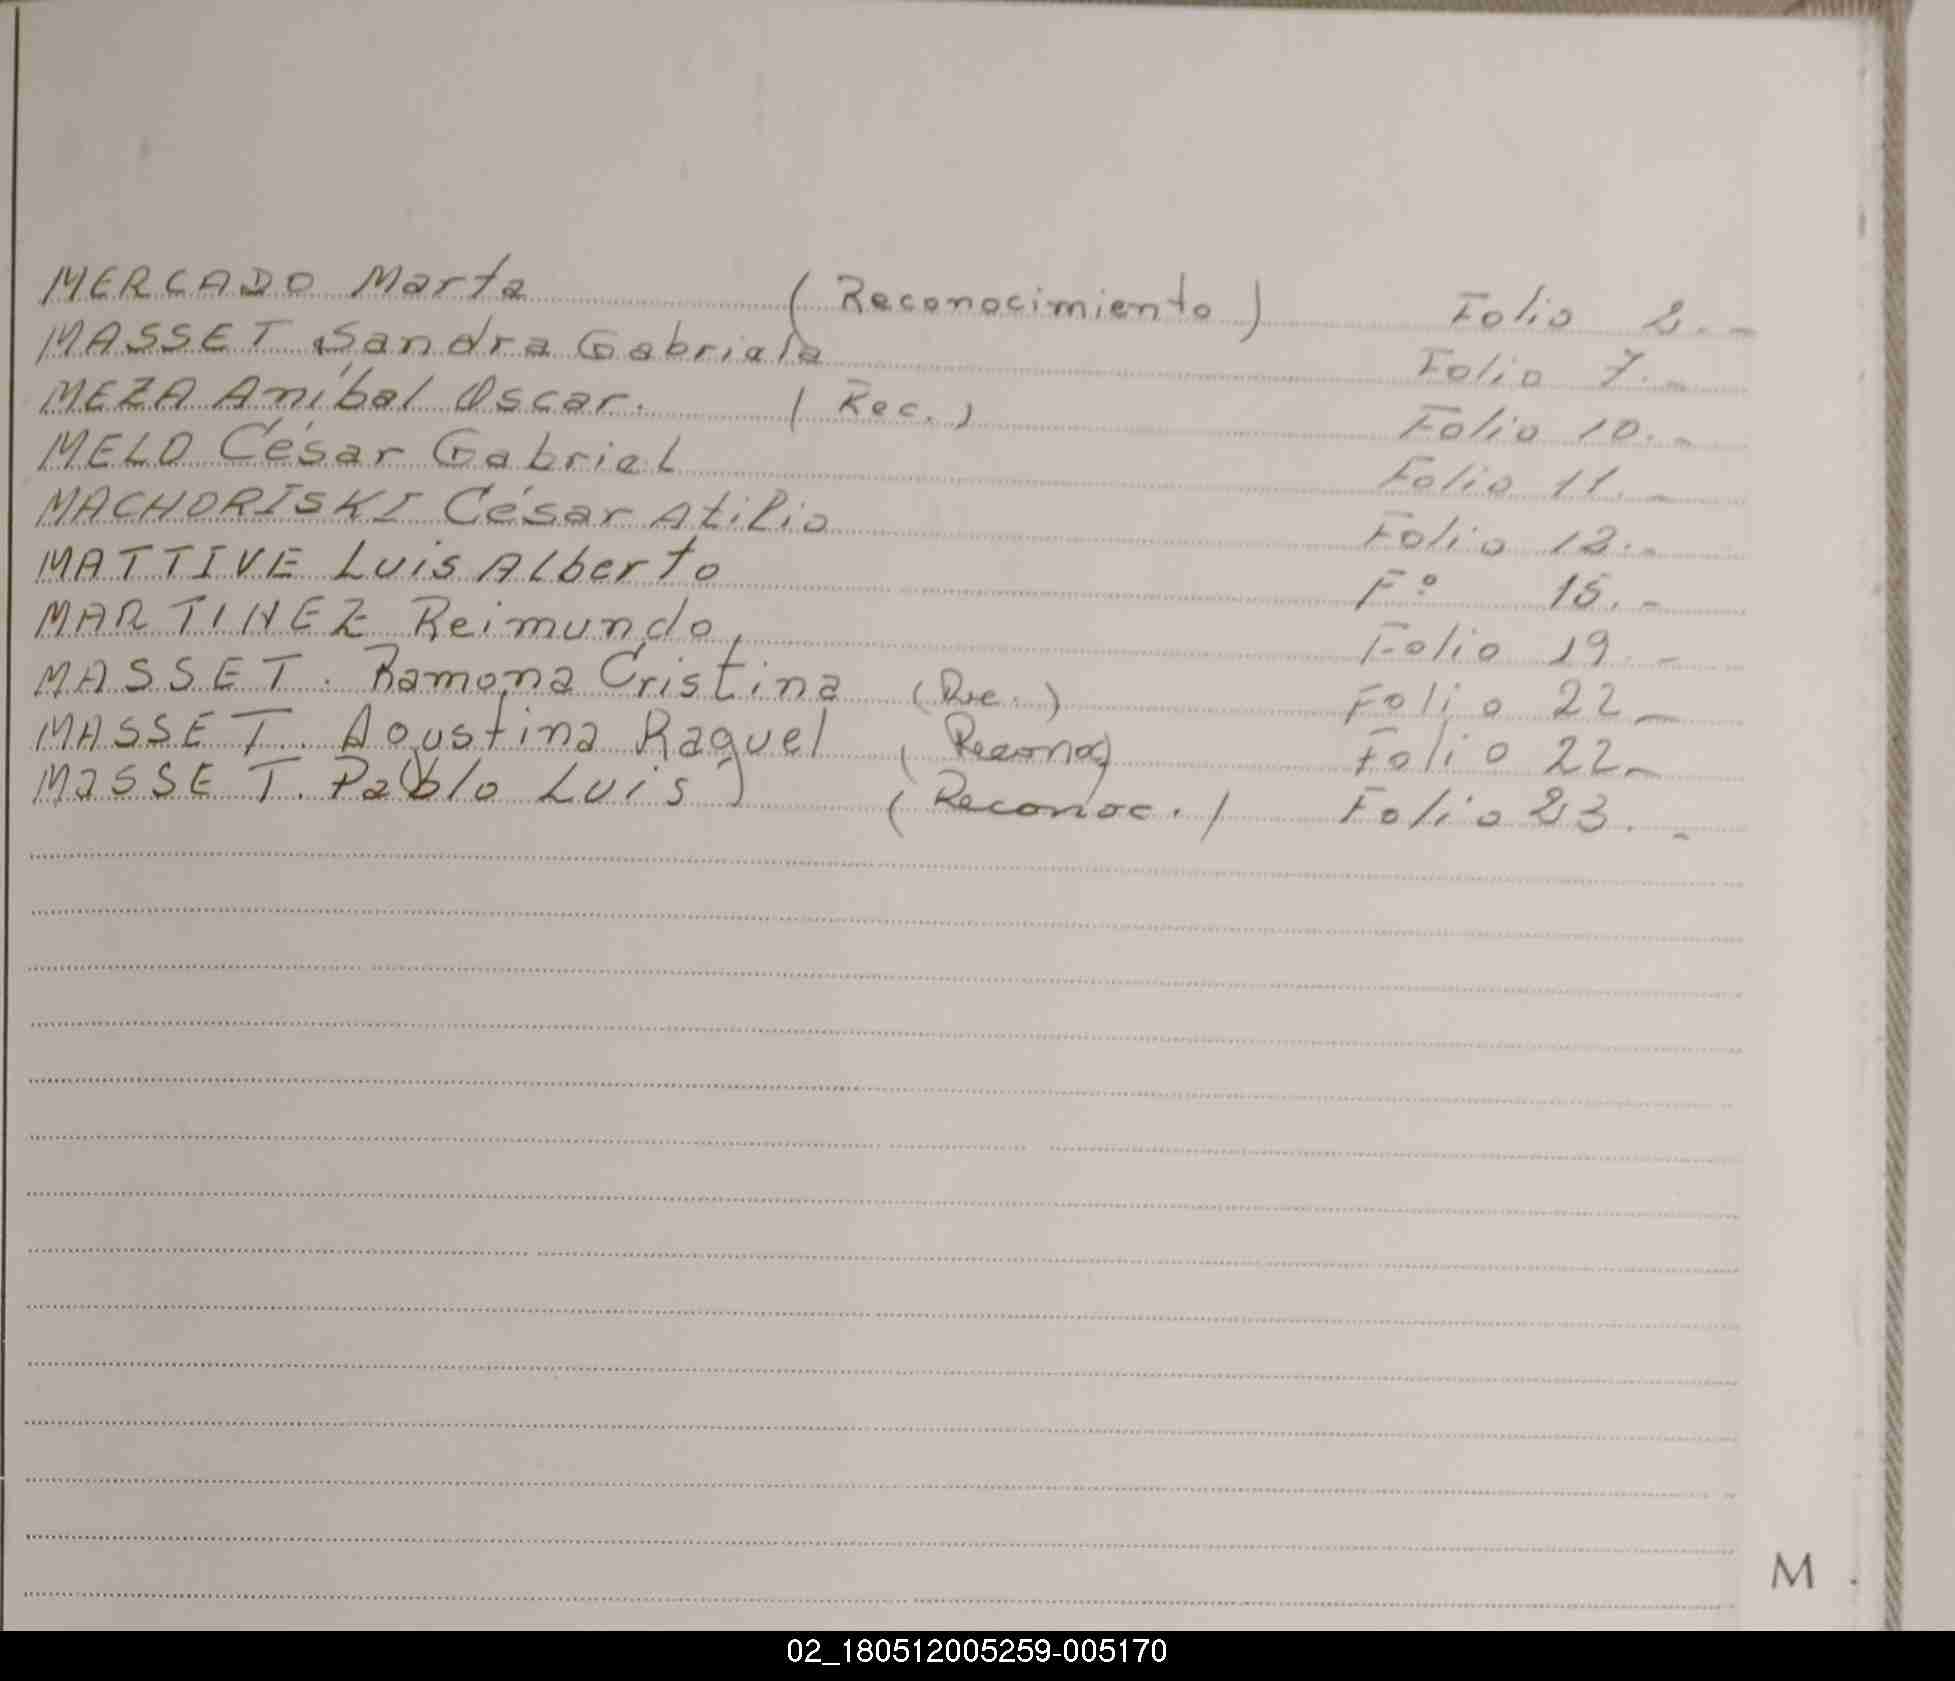 MERCADO Marta (Reconocimiento) Folio 2.-
MASSET Sandra Gabriela Folio 7.-
MEZA Aníbal Oscar. (Rec.) Folio 10.-
MELO César Gabriel Folio 11.-
MACHORISKI César Atilio Folio 12.-
MATTIVE Luis Alberto F° 15.-
MARTINEZ Reimundo, Folio 19.-
MASSET. Ramona Cristina (Re.) Folio 22-
MASSET. Agustina Raquel (Reconoc) Folio 22-
MASSET. Pablo Luis (Reconoc.) Folio 23.-
M
02_180512005259-005170